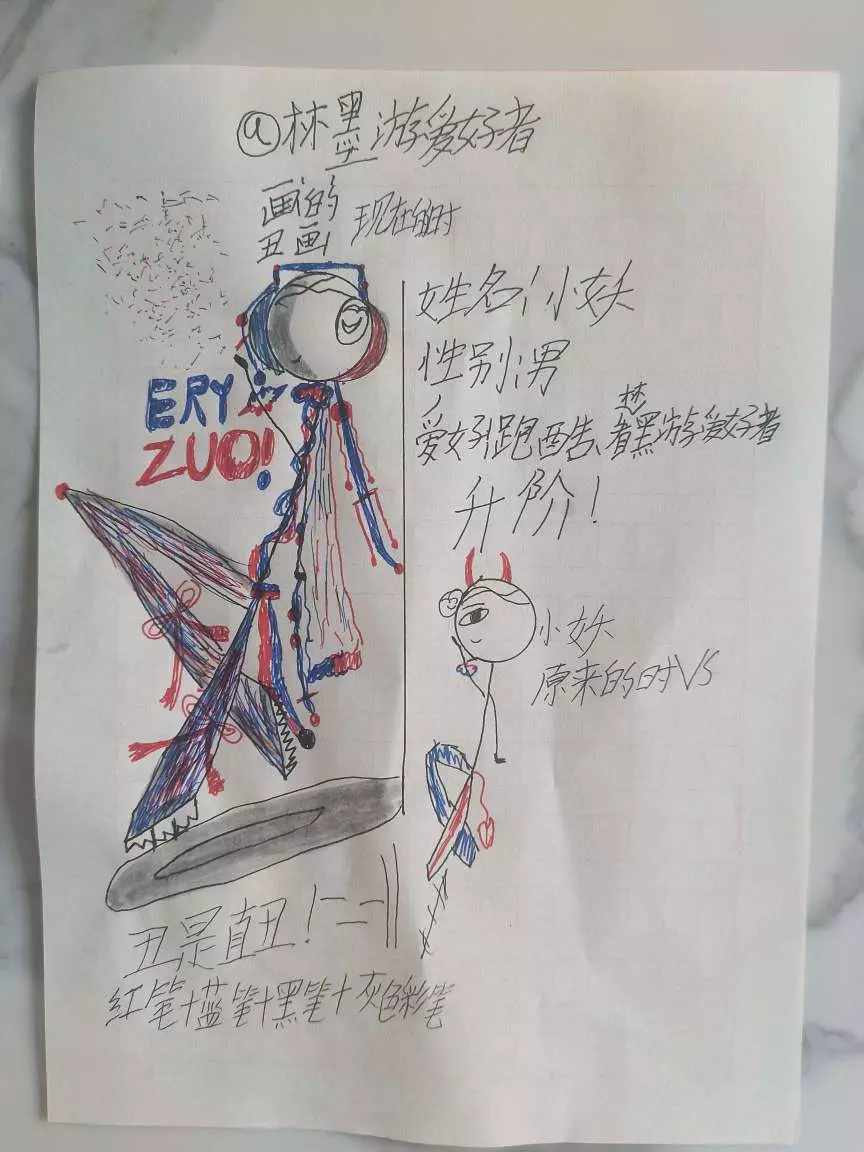 @林墨游爱好者
画的
丑画 现在的时
姓名:小妖
性别:男
ERY
ZUO!
爱好:跑酷、
林
墨游爱好者
升阶!
小妖
原来的时VS
丑是真丑!
红笔+蓝笔+黑笔+灰色彩笔